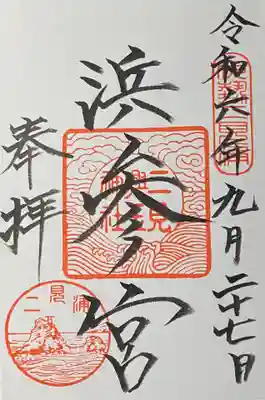 令和六年九月二十七日
浜参宮
奉拝
二見興玉神社
二見浦